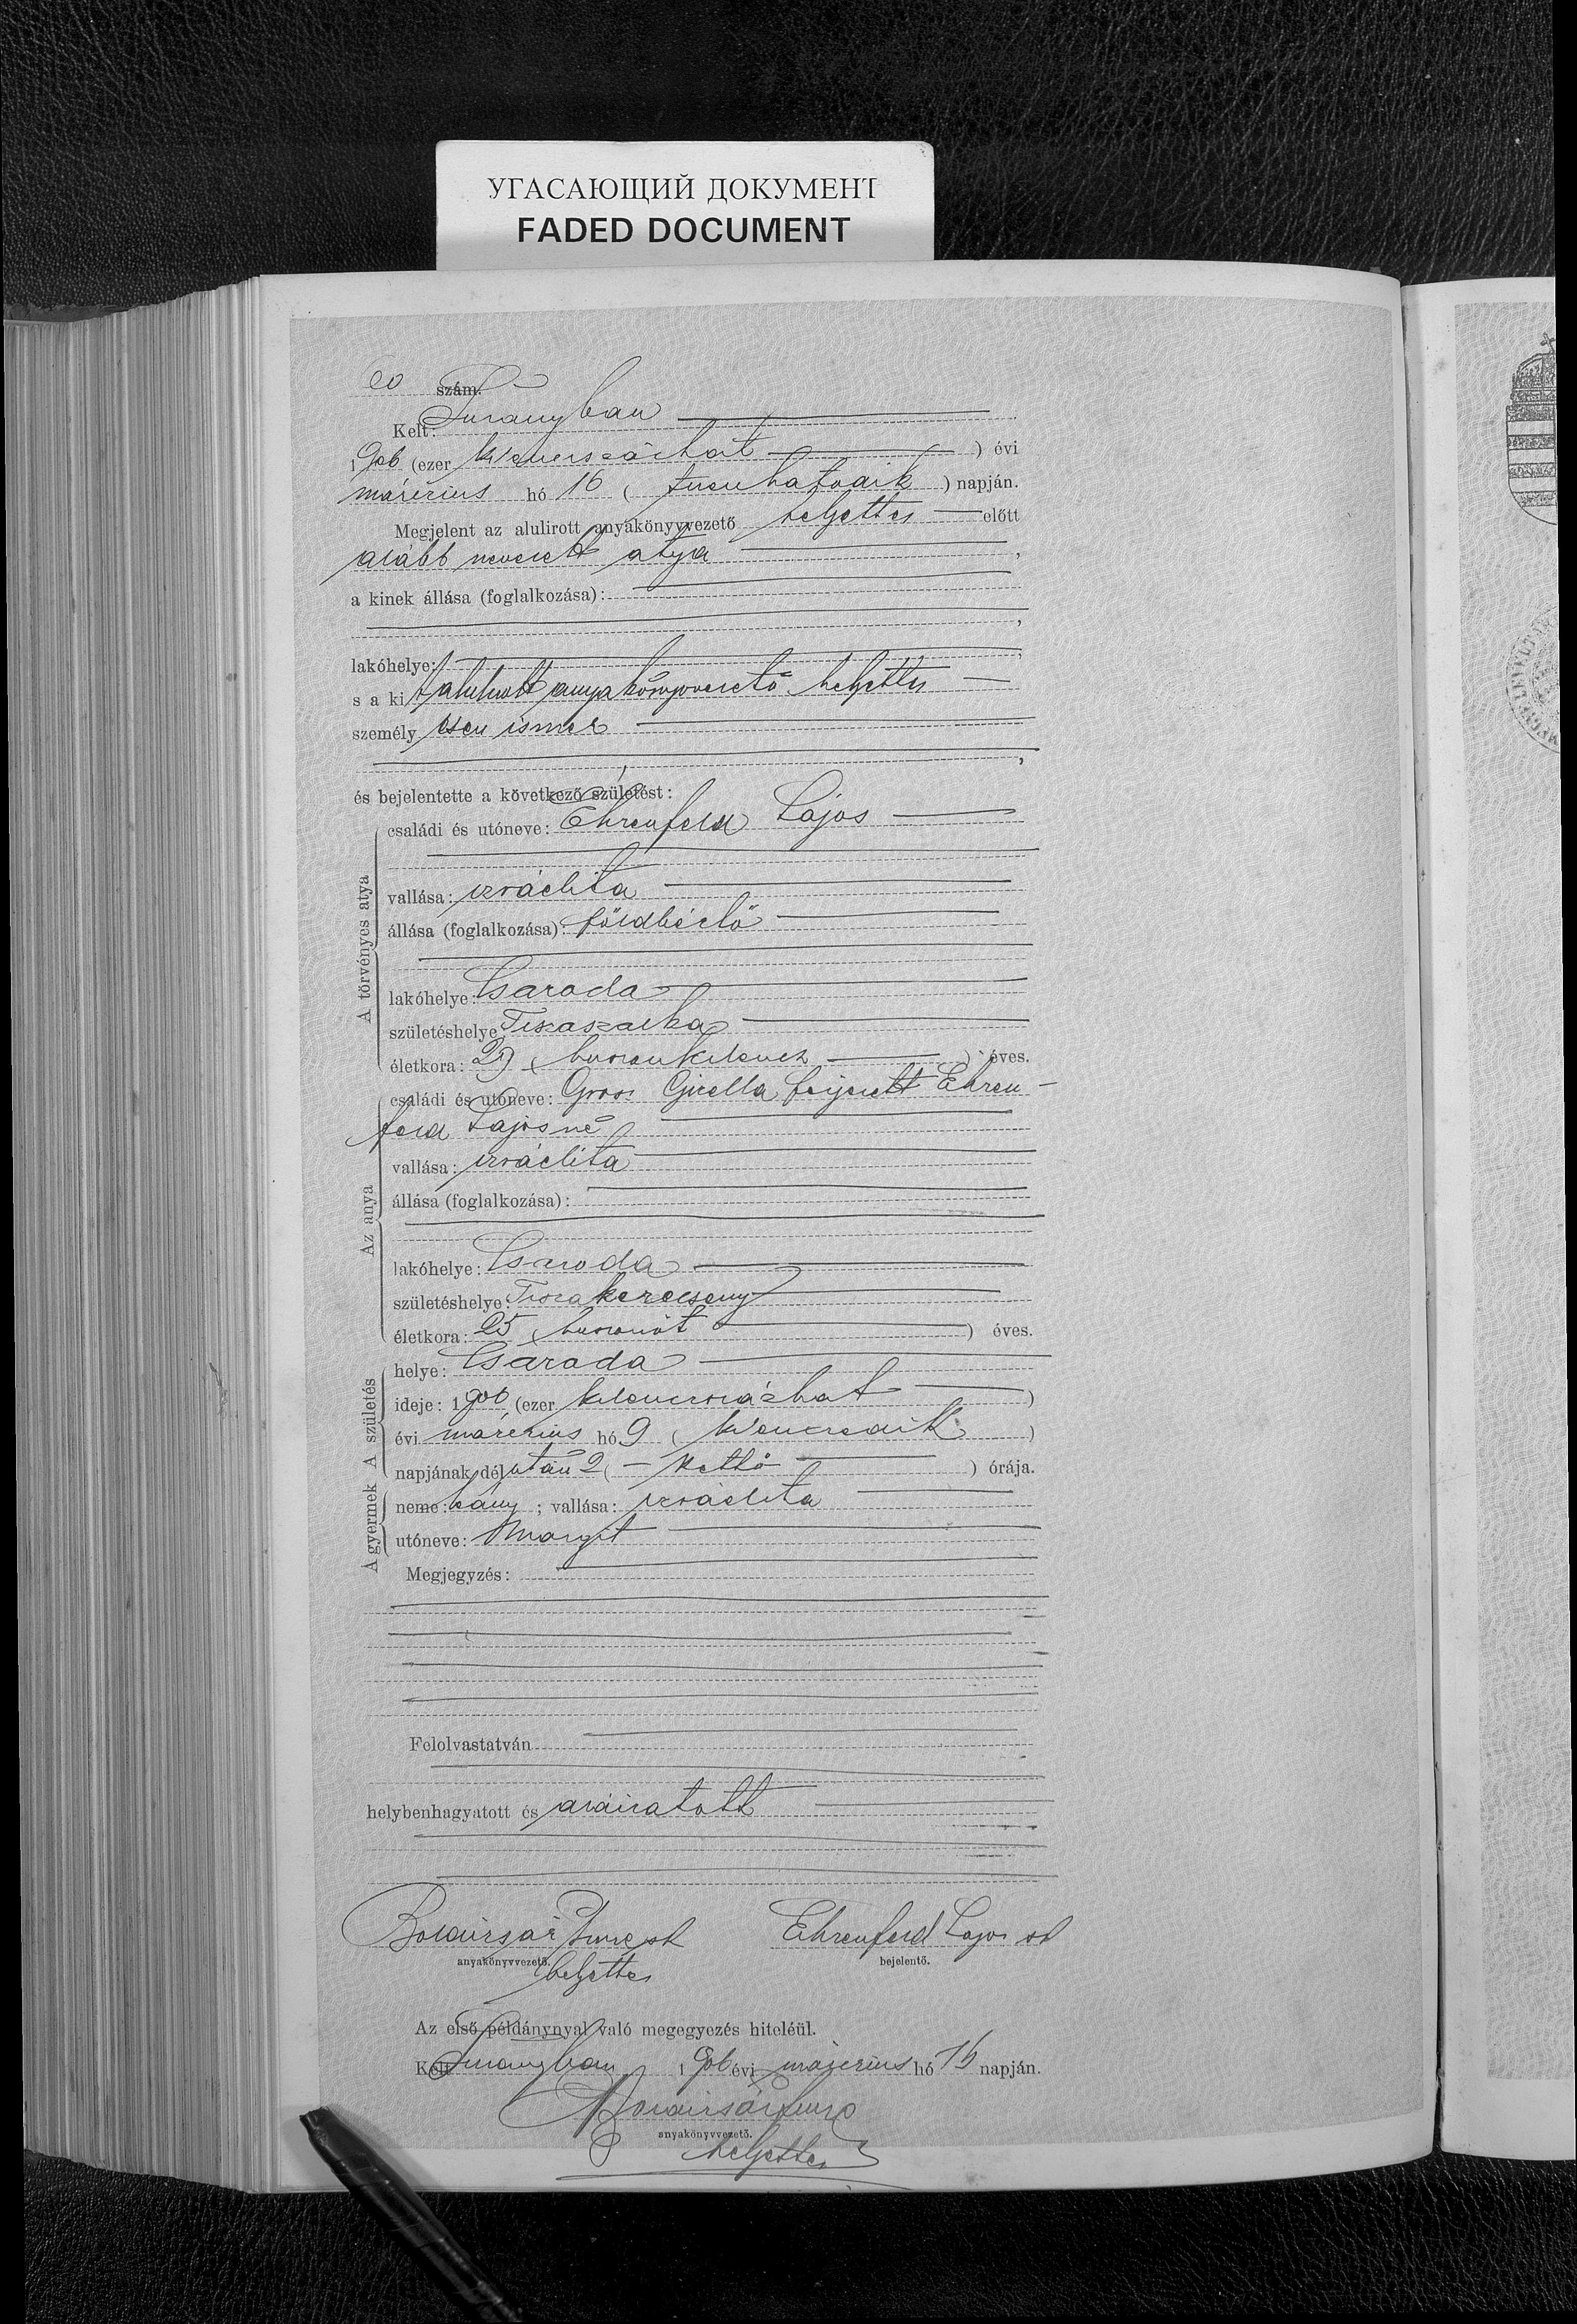 УГАСАЮЩИЙ ДОКУМЕНТ
FADED DOCUMENT
szám.
Kelt:
1906 (ezer kilenczszázhat) évi
márczius hó 16 (tizenhatodik) napján.
Megjelent az alulirott anyakönyvvezető helyettes előtt
alább nevezett atya,
a kinek állása (foglalkozása):
lakóhelye:
s a kit alulirott anyakönyvvezető helyettes
személyesen ismer
és bejelentette a következő születést:
A törvényes atya
családi és utóneve: Ehrenfeld Lajos
vallása: izráelita
állása (foglalkozása): földbérlő
lakóhelye: Csaroda
születéshelye: Tiszaszalka
életkora: 29 (huszonkilencz) éves.
Az anya
családi és utóneve: Gross Gizella férjezett Ehren-
feld Lajosné
vallása: izráelita
állása (foglalkozása):
lakóhelye: Csaroda
születéshelye: Tiszakerecseny
életkora: 25 (huszonöt) éves.
A születés
helye: Csaroda
ideje: 1906 (ezer kilenczszázhat)
évi márczius hó 9 (kilenczedik)
napjának délután 2 (- kettő) órája.
A gyermek
neme: leány; vallása: izráelita
utóneve: Margit
Megjegyzés:
Felolvastatván
helybenhagyatott és aláiratott
Imre sk Ehrenfeld Lajos sk
anyakönyvvezető. bejelentő.
helyettes
Az első példánynyal való megegyezés hiteléül.
Kelt 1906 évi márczius hó 16 napján.
Imre
anyakönyvvezető.
helyettes